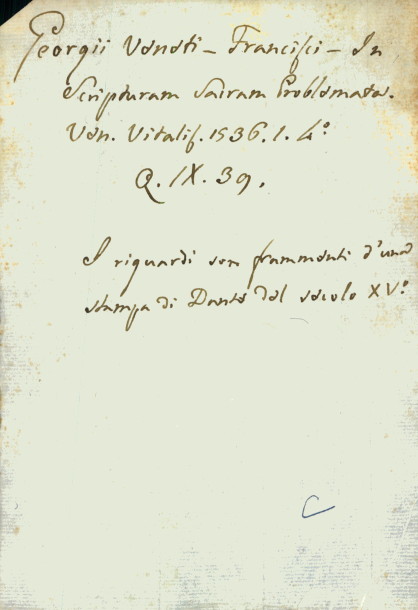 Georgii Veneti - Francisci - In
Scripturam Sacram Problemata.
Ven. Vitali. 1536. 1. 4.°
Q. IX. 39.
I riguardi son frammenti d'una
stampa di Dante del secolo XV.°
C